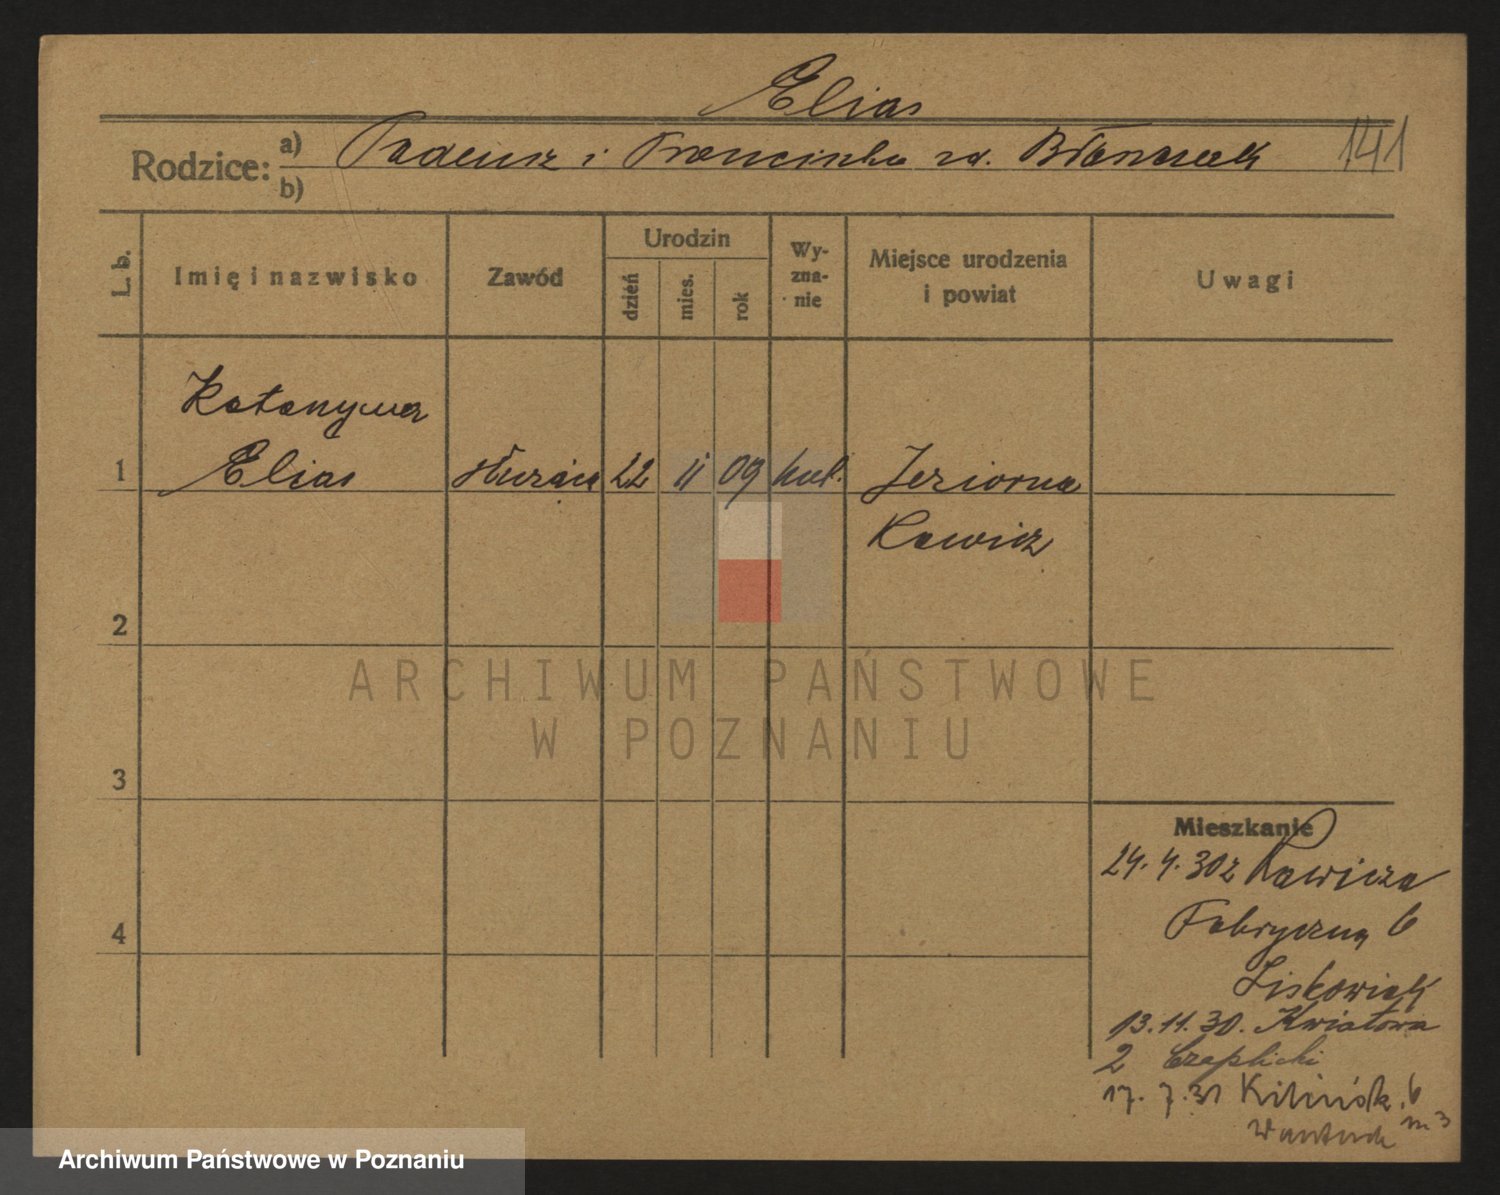 Elias
Rodzice: a) Tadeusz i Franciszka zd. Błaszczak 141
b)
L. b. Imię i nazwisko Zawód Urodzin dzień mies. rok Wy-zna-nie Miejsce urodzenia i powiat Uwagi
Katarzyna
1 Elias służąca 22 11 09 kat. Jeziorna
Rawicz
2
3
4
Mieszkanie
24. 4. 30 z Rawicza
Fabryczna 6
Liskowiak
13. 11. 30. Kwiatowa
2 Czaplicki
17. 7. 31 Kilińsk. 6
m 3
ARCHIWUM PAŃSTWOWE
W POZNANIU
Archiwum Państwowe w Poznaniu